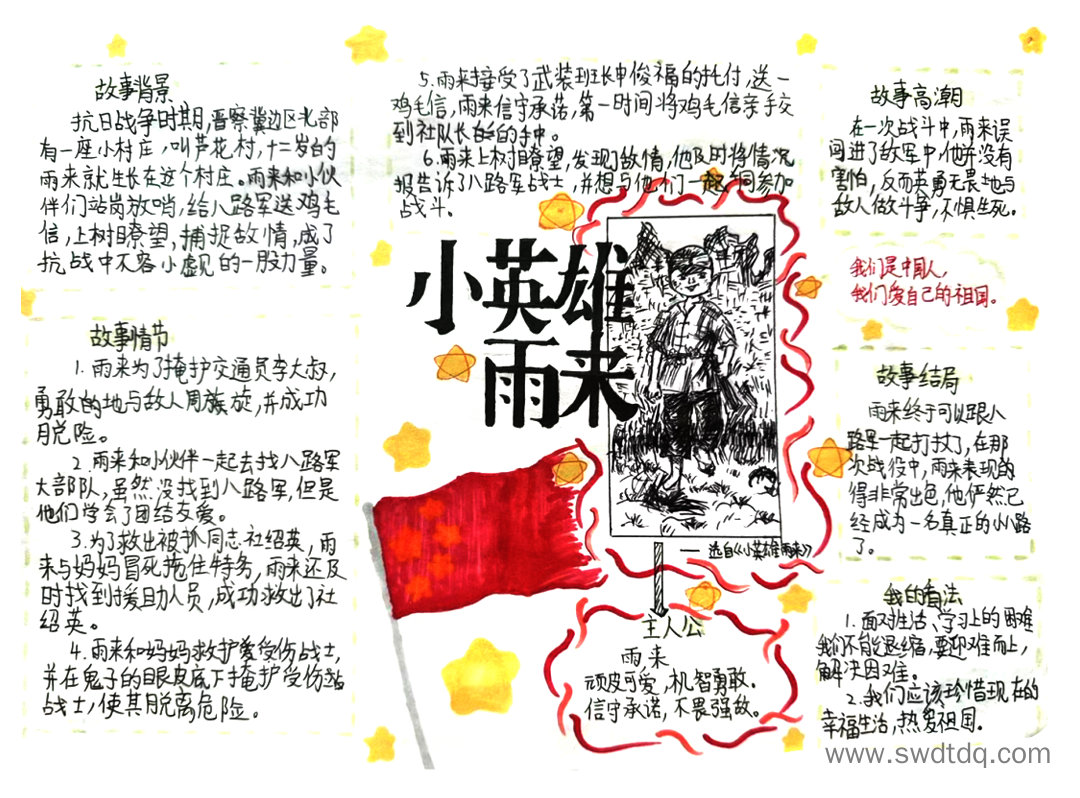 故事背景
抗日战争时期,晋察冀边区北部
有一座小村庄,叫芦花村,十二岁的
雨来就生长在这个村庄。雨来和小伙
伴们站岗放哨,给八路军送鸡毛
信,上树瞭望,捕捉敌情,成了
抗战中不容小虚见的一股力量。
故事情节
1.雨来为了掩护交通员李大叔,
勇敢的地与敌人周旋,并成功
脱险。
2.雨来和小伙伴一起去找八路军
大部队,虽然没找到八路军,但是
他们学会了团结友爱。
3.为了救出被抓同志社绍英,雨
来与妈妈冒死拖住特务,雨来还及
时找到援助人员,成功救出了社
绍英。
4.雨来和妈妈救护受伤战士,
并在鬼子的眼皮底下掩护受伤
战士,使其脱离危险。
5.雨来接受了武装班长申俊福的托付,送一
鸡毛信,雨来信守承诺,第一时间将鸡毛信亲手交
到社队长的手中。
6.雨来上树瞭望,发现敌情,他及时将情况
报告诉了八路军战士,并想与他们一起同参加
战斗。
小英雄
雨来
——选自《小英雄雨来》
主人公
雨来
顽皮可爱,机智勇敢.
信守承诺,不畏强敌.
故事高潮
在一次战斗中,雨来误
闯进了敌军中,他并没有
害怕,反而英勇无畏地与
敌人做斗争,不惧生死。
我们是中国人,
我们爱自己的祖国。
故事结局
雨来终于可以跟八
路军一起打扙了,在那
次战役中,雨来表现的
得非常出色,他俨然已
经成为一名真正的小八路
了。
我的看法
1.面对生活、学习上的困难
我们不能退缩,要迎难而上,
解决困难。
2.我们应该珍惜现在的
幸福生活,热爱祖国。
www.swdtdq.com